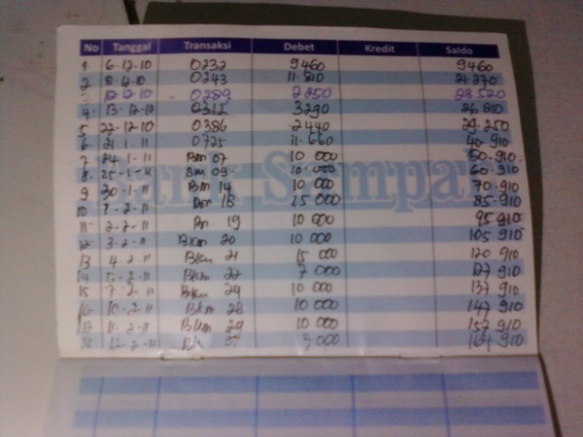 No Tanggal Transaksi Debet Kredit Saldo
1 6-12-10 0232 9460 9460
2 8-12-10 0243 11.810 21.270
12-12-10 0289 2250 23.520
4 13-12-10 0312 3290 26.810
5 22-12-10 0386 2440 29.250
6 21-1-11 0725 11.660 40.910
7 24-1-11 Bm 07 10 000 50.910
8 Bm 09 10.000 60.910
9 30-1-11 Bm 14 10 000 70.910
10 18 15 000 85.910
11 2-2-11 19 10 000 95 910
12 3-2-11 Bkm 20 10 000 105 910
13 4-2-11 Bkm 21 15 000 120 910
14 5-2-11 Bkm 22 7 000 127 910
15 7-2-11 Bkm 24 10 000 137 910
16 10-2-11 Bkm 28 10 000 147 910
17 11-2-11 Bkm 29 10 000 157 910
12-2-11
Bank Sampah